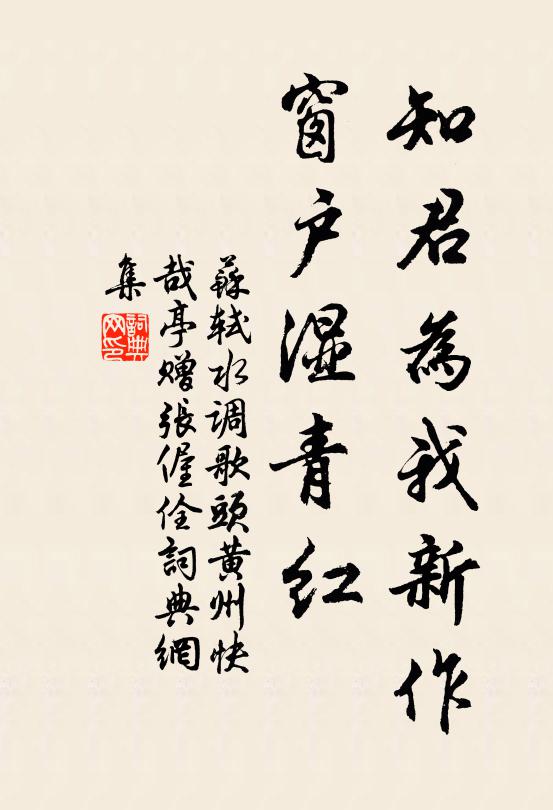 知君為我新作
窗户湿青红
蘇軾水調歌頭黄州快
哉亭赠張偓佺詞典網
集
詞典
网印